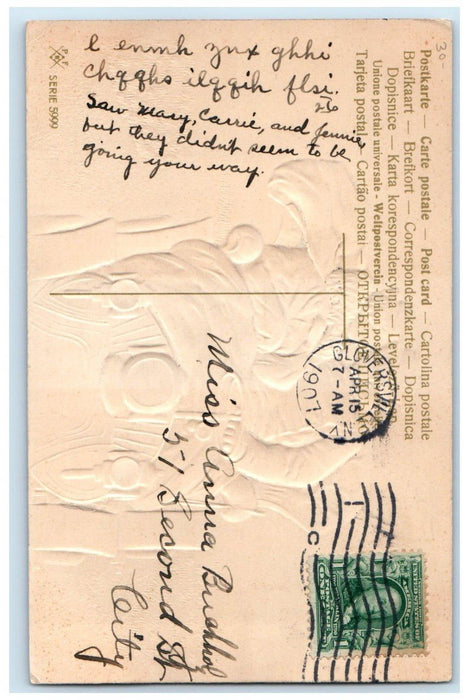 l enmh znx ghhi
chqqhs ilqqih flsi.
Saw Mary, Carrie, and Jennie,
but they didn't seem to be
going your way.
P.F.
SERIE 5999
30-
Postkarte — Carte postale — Post card — Cartolina postale
Briefkaart — Brefkort — Correspondenzkarte — Dopisnica
Dopisnice — Karta korespondencyjna —
Unione postale universale - Weltpostverein - Union
Tarjeta postal — Cartão postal —
GLOVERSVILLE
APR 15
7-AM
N.Y.
1907
Miss Anna Buchholz
51 Second St
City